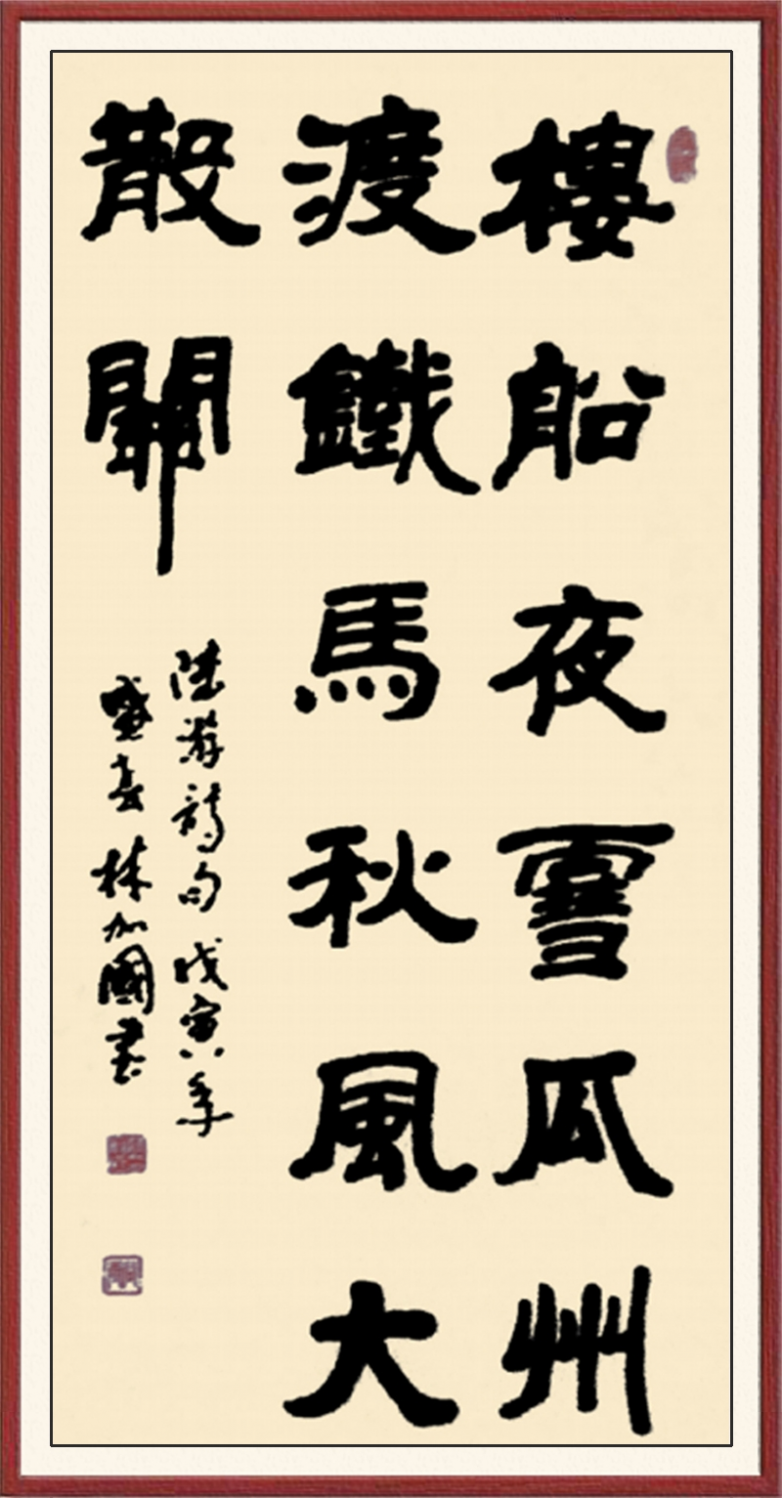 樓船夜雪瓜州
渡鐵馬秋風大
散關
陸游詩句戊寅年
盛春林加國書